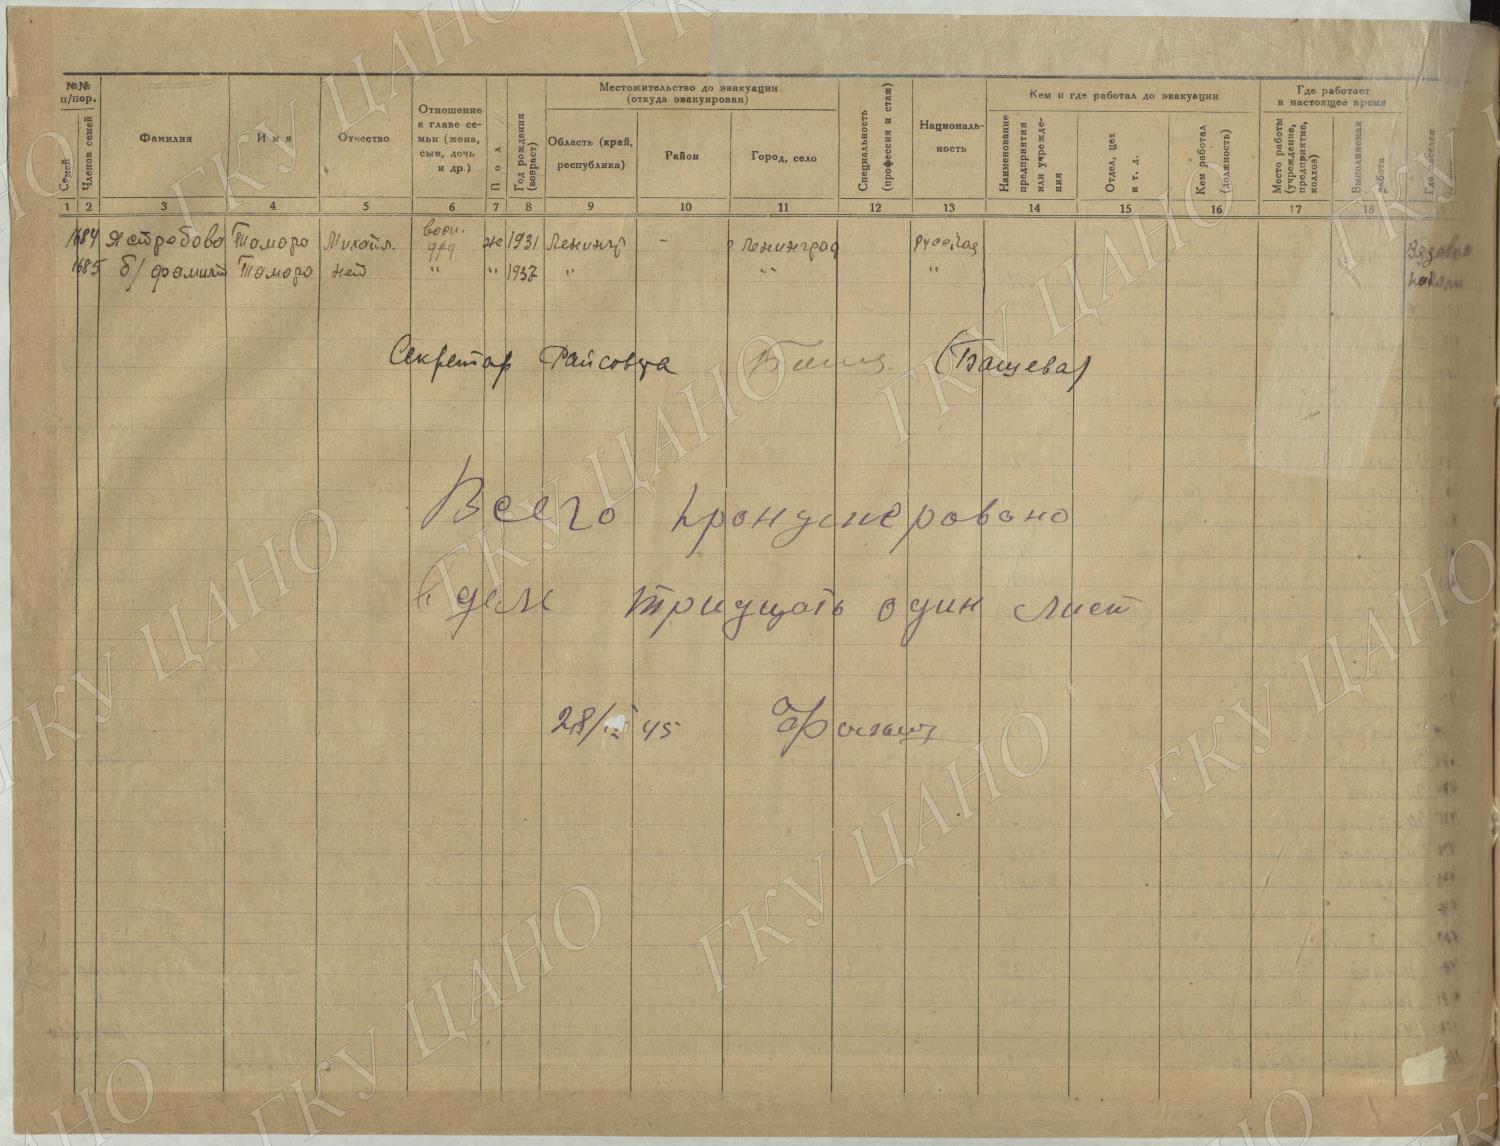 №№ п/пор.
Семей
Членов семей
Фамилия
Имя
Отчество
Отношение к главе семьи (жена, сын, дочь и др.)
Пол
Год рождения (возраст)
Местожительство до эвакуации (откуда эвакуирован)
Область (край, республика)
Район
Город, село
Специальность (профессия и стаж)
Национальность
Кем и где работал до эвакуации
Наименование предприятия или учреждения
Отдел, цех и т. д.
Кем работал (должность)
Где работает в настоящее время
Место работы (учреждение, предприятие, колхоз)
Выполняемая работа
Где поселен
1 2 3 4 5 6 7 8 9 10 11 12 13 14 15 16 17 18
1684 Ястребова Тамара Михайл. восп. д/д ж 1931 Ленингр - г Ленинград русская
1685 б/фамил Тамара нет " " 1937 " " "
Секретар Райсовета (Бащева)
Всего пронумеровано
в деле тридцать один лист
28/ 45
ГКУ ЦАНО